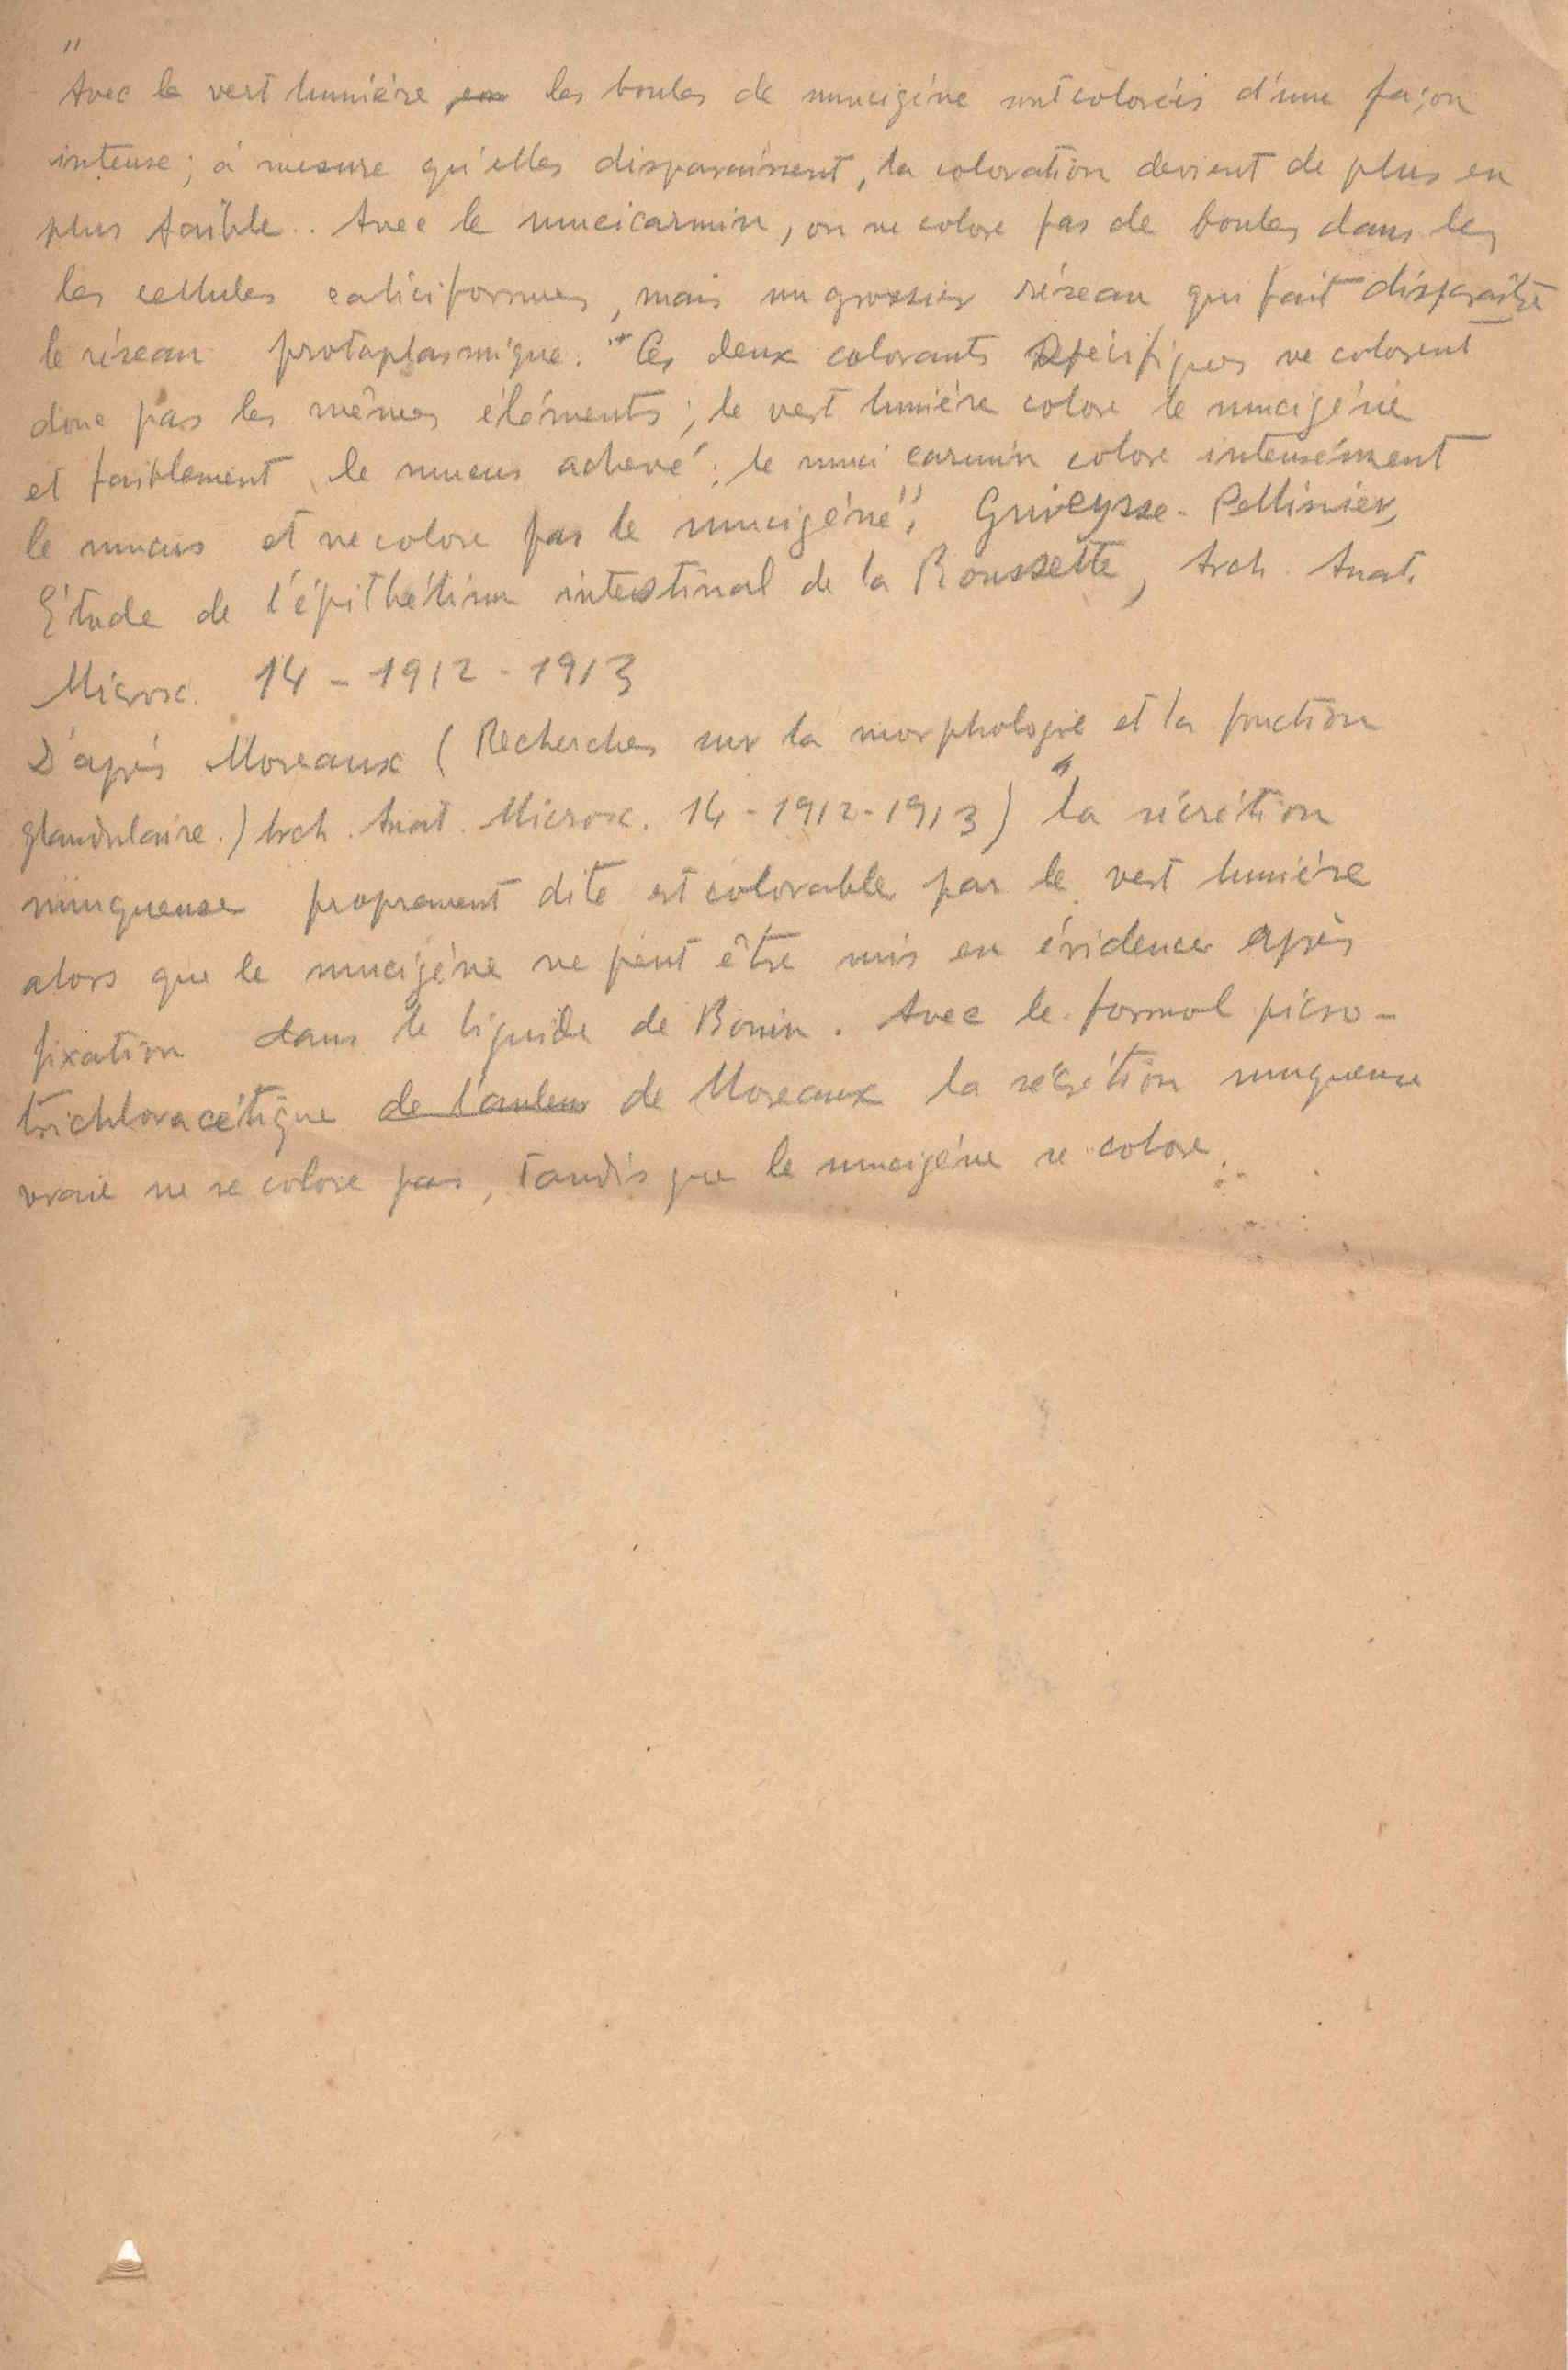 "
Avec le vert lumière en les boules de mucigène sont colorées d'une façon
intense; à mesure qu'elles disparaissent, la coloration devient de plus en
plus faible.. Avec le mucicarmin, on ne colore pas de boules dans les
les cellules caliciformes, mais un grossier réseau qui fait disparaître
le réseau protoplasmique. "Ces deux colorants spécifiques ne colorent
donc pas les mêmes éléments; le vert lumière colore le mucigène
et faiblement le mucus achevé; le muci carmin colore intensément
le mucus et ne colore pas le mucigène", Guieysse-Pellissier,
Étude de l'épithélium intestinal de la Roussette, Arch. Anat.
Microsc. 14 - 1912 - 1913
D'après Moreaux (Recherches sur la morphologie et la fonction
glandulaire.) Arch. Anat. Microsc. 14 - 1912 - 1913) "la sécrétion
muqueuse proprement dite est colorable par le vert lumière
alors que le mucigène ne peut être mis en évidence après
fixation dans le liquide de Bouin. Avec le formol picro-
trichloracétique de l'auteur de Moreaux la sécrétion muqueuse
vraie ne se colore pas, tandis que le mucigène se colore.